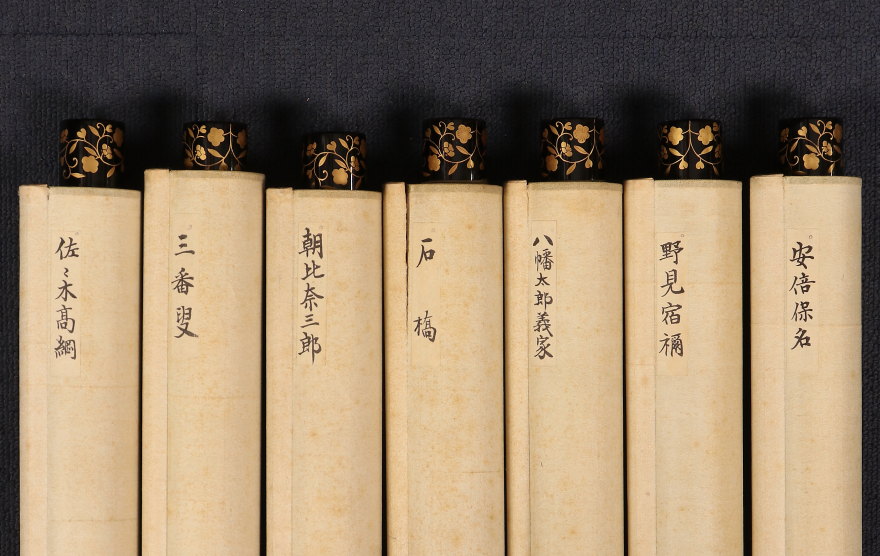 安倍保名
野見宿禰
八幡太郎義家
石橋
朝比奈三郎
三番叟
佐々木高綱